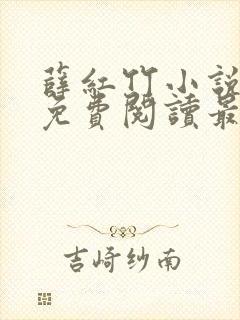 薛紅竹小說
免費閱讀最
吉崎纱南